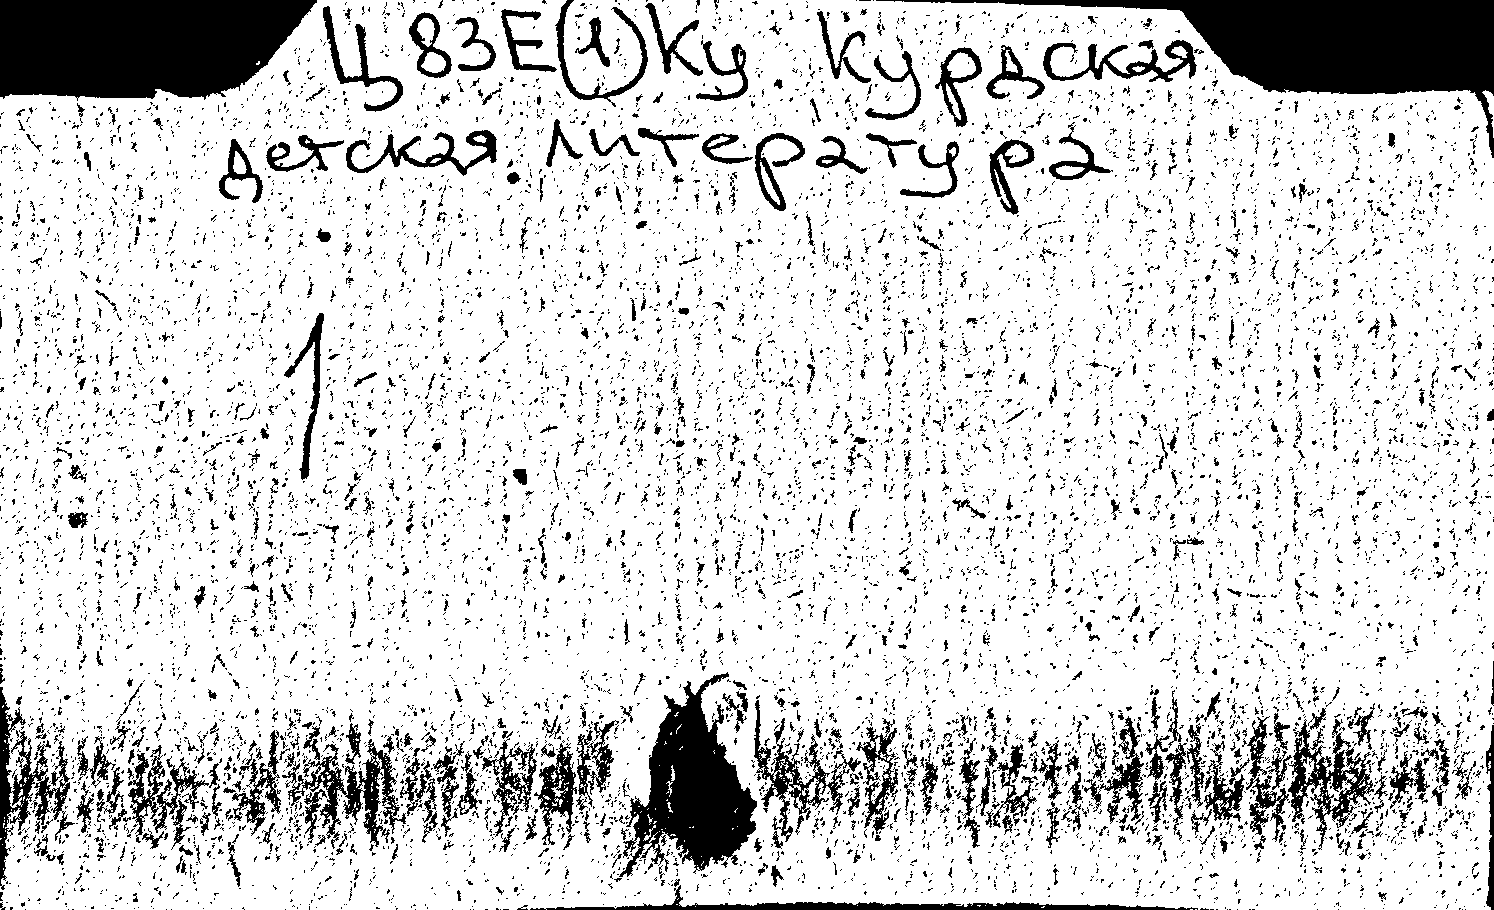 Ц83Е(1)Ку. Курдская
детская литература
1